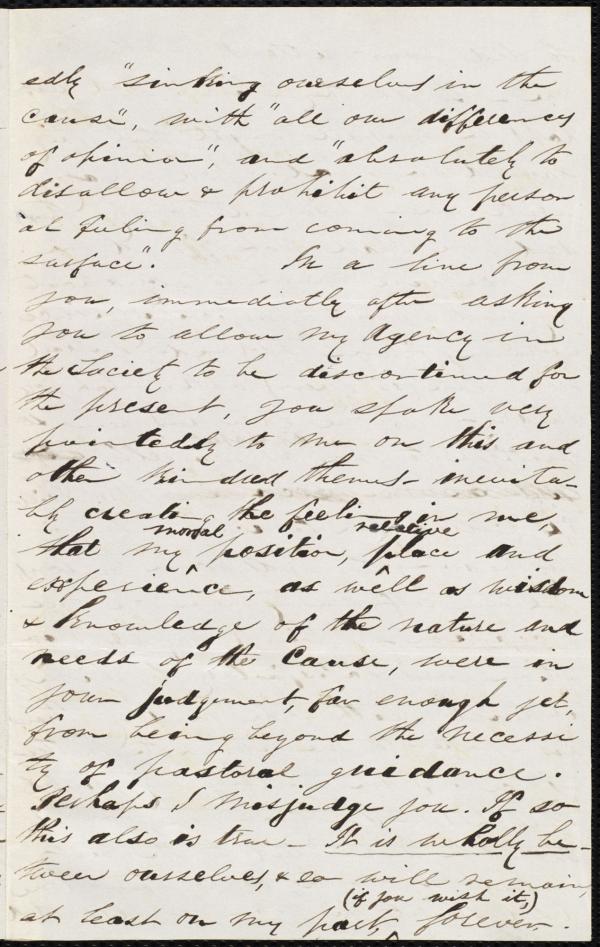 edly "sinking ourselves in the
cause", with "all our differences
of opinion", and "absolutely to
disallow & prohibit any person
al feeling from coming to the
surface". In a line from
you, immediatly after asking
you to allow my Agency in
the Society to be discontinued for
the present, you spoke very
pointedly to me on this and
other kindred themes - inevita-
bly creating the feeling in me,
moral relative
that my position, place and
experience, as well as wisdom
& knowledge of the nature and
needs of the Cause, were in
your judgement, far enough yet,
from being beyond the necessi
ty of pastoral guidance.
Perhaps I misjudge you. If so
this also is true - It is wholly be-
tween ourselves, & so will remain,
(if you wish it,)
at least on my part, forever.